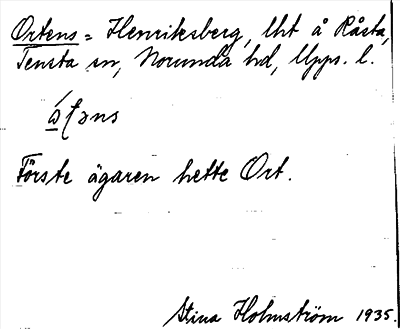 Ortens = Henriksberg, lht å Råsta,
Tensta sn, Norunda hd, Upps. l.
Förste ägaren hette Ort.
Stina Holmström 1935.